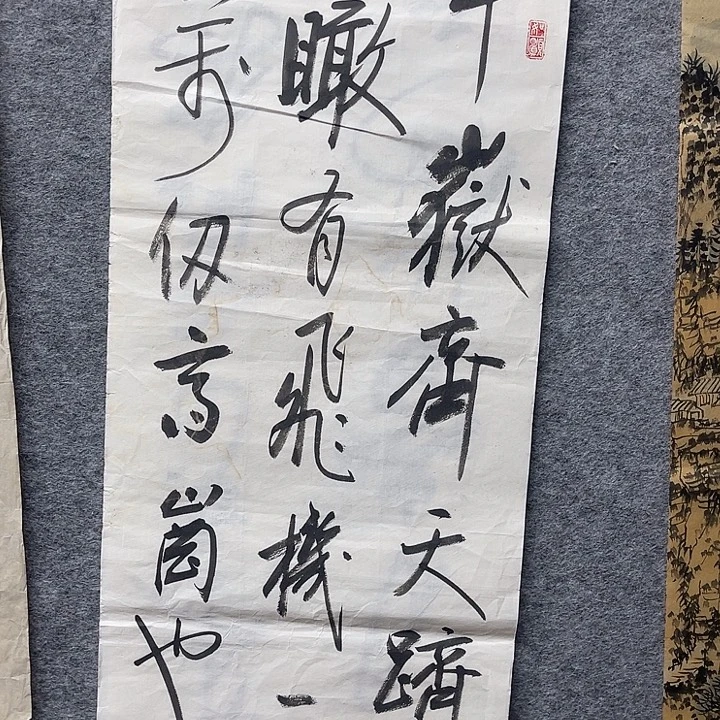 嶽齊天躋
瞰有飛機一
萬仞高崗也